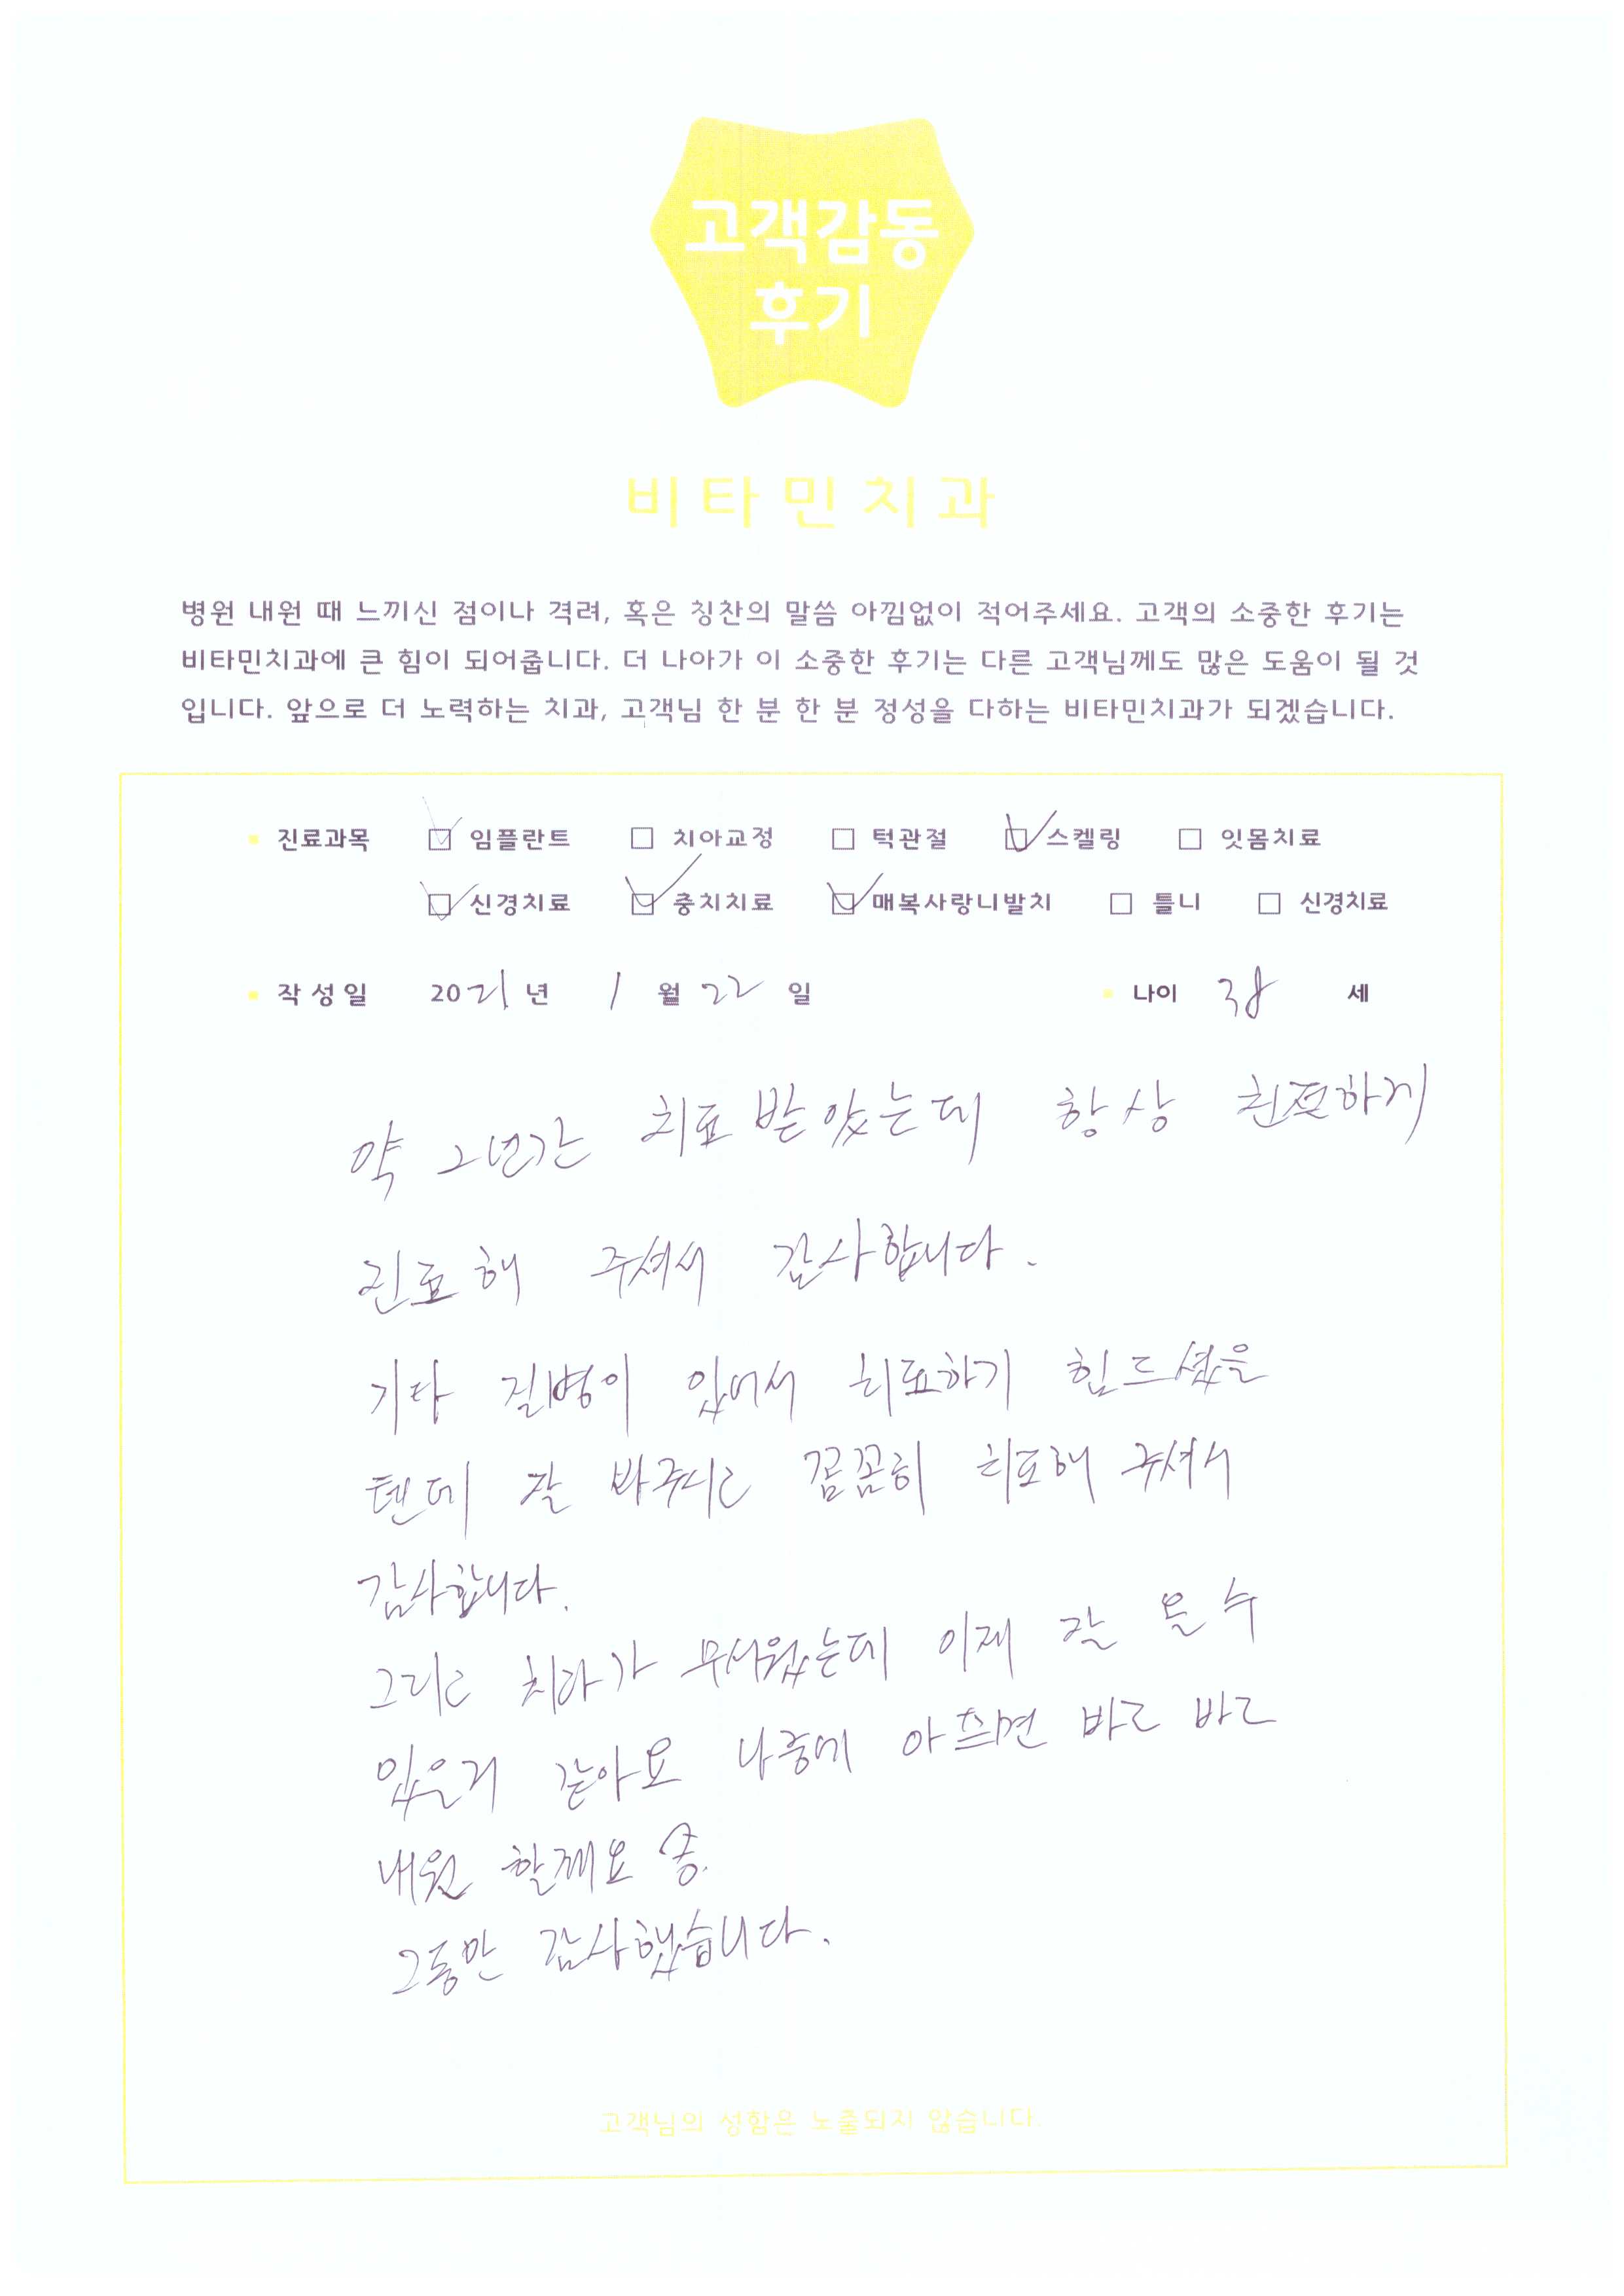 고객감동
후기
비타민치과
병원 내원 때 느끼신 점이나 격려, 혹은 칭찬의 말씀 아낌없이 적어주세요. 고객의 소중한 후기는
비타민치과에 큰 힘이 되어줍니다. 더 나아가 이 소중한 후기는 다른 고객님께도 많은 도움이 될 것
입니다. 앞으로 더 노력하는 치과, 고객님 한 분 한 분 정성을 다하는 비타민치과가 되겠습니다.
진료과목 임플란트 치아교정 턱관절 스켈링 잇몸치료
신경치료 충치치료 매복사랑니발치 틀니 신경치료
작성일 2021년 1월 22일 나이 38 세
약 2년간 치료 받았는데 항상 친절하게
진료해 주셔서 감사합니다.
기타 질병이 있어서 치료하기 힘드셨을
텐데 잘 봐주시고 꼼꼼히 치료해 주셔서
감사합니다.
그리고 치과가 무서웠는데 이제 잘 올 수
있을거 같아요 나중에 아프면 바로 바로
내원 할께요
그동안 감사했습니다.
고객님의 성함은 노출되지 않습니다.